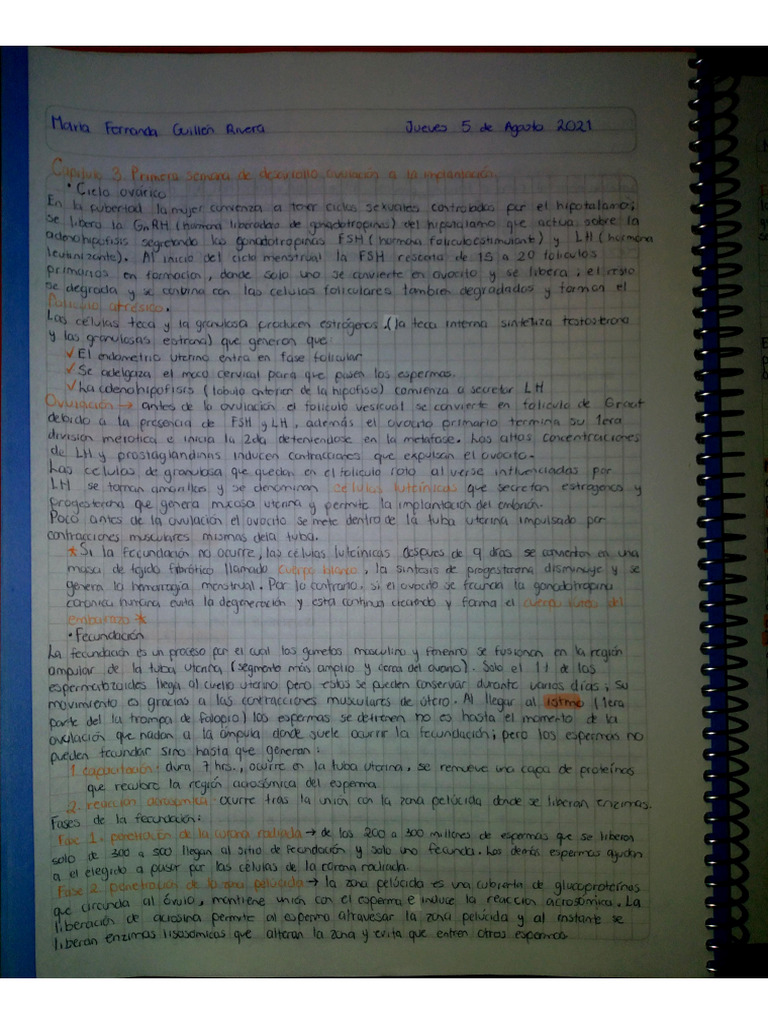 Maria Fernanda Guillén Rivera Jueves 5 de Agosto 2021
Capitulo 3. Primera semana de desarrollo ovulación a la implantación
• Ciclo ovárico
En la pubertad la mujer comienza a tener ciclos sexuales controlados por el hipotalamo;
se libera la GnRH (hormona liberadora de gonadotropinas) del hipotalamo que actua sobre la
adenohipofisis segregando las gonadotropinas FSH (hormona foliculoestimulante) y LH (hormona
leutinizante). Al inicio del ciclo menstrual la FSH rescata de 15 a 20 foliculos
primarios en formacion, donde solo uno se convierte en ovocito y se libera; el resto
se degrada y se combina con las celulas foliculares tambien degradados y forman el
foliculo atrésico.
Las células teca y la granulosa producen estrógenos (la teca interna sintetiza testosterona
y las granulosas estrona) que generan que:
✓ El endometrio uterino entra en fase folicular
✓ Se adelgaza el moco cervical para que pasen los espermas.
✓ La adenohipofisis (lobulo anterior de la hipofisis) comienza a secretar LH
Ovulación → antes de la ovulación el foliculo vesicual se convierte en foliculo de Graaf
debido a la presencia de FSH y LH, además el ovocito primario termina su 1era
division meiotica e inicia la 2da deteniendose en la metafase. Las altas concentraciones
de LH y prostaglandinns inducen contracciones que expulsan el ovocito.
Las celulas de granulosa que quedan en el foliculo roto al verse influenciadas por
LH se tornan amarillas y se denominan células luteínicas que secretan estrogenos y
progesterona que genera mucosa uterina y permite la implantación del embrión.
Poco antes de la ovulación el ovocito se mete dentro de la tuba uterina impulsado por
contracciones musculares mismas de la tuba.
* Si la fecundación no ocurre, las células luteínicas despues de 9 días se convierten en una
masa de tejido fibrótico llamado cuerpo blanco, la síntesis de progesterona disminuye y se
genera la hemorragia menstrual. Por lo contrario, si el ovocito se fecunda la gonadotropina
corionica humana evita la degeneración y esta continua creciendo y forma el cuerpo lúteo del
embarazo *
• Fecundación
La fecundación es un proceso por el cual los gametos masculino y femenino se fusionan en la región
ampular de la tuba uterina (segmento más amplio y cerca del ovario). Solo el 1% de los
espermatozoides llega al cuello uterino pero estos se pueden conservar durante varios días; su
movimiento es gracias a las contracciones musculares de útero. Al llegar al istmo (1era
parte del la trompa de falopio) los espermas se detienen no es hasta el momento de la
ovulación que nadan a la ámpula donde suele ocurrir la fecundación; pero los espermas no
pueden fecundar sino hasta que generan:
1. capacitación: dura 7 hrs., ocurre en la tuba uterina, se remueve una capa de proteínas
que recubre la región acrosómica del esperma.
2. reacción acrosómica: ocurre tras la unión con la zona pelúcida donde se liberan enzimas.
Fases de la fecundación:
Fase 1. penetración de la corona radiada → de los 200 a 300 millones de espermas que se liberan
solo de 300 a 500 llegan al sitio de fecundación y solo uno fecunda. Los demás espermas ayudan
a el elegido a pasar por las células de la corona radiada.
Fase 2. penetración de la zona pelúcida → la zona pelúcida es una cubierta de glucoproteínas
que circunda al óvulo, mantiene unión con el esperma e induce la reaccion acrosómica. La
liberación de acrosina permite al esperma altravesar la zona pelucida y al instante se
liberan enzimas lisosómicas que alteran la zona y evita que entren otros espermas